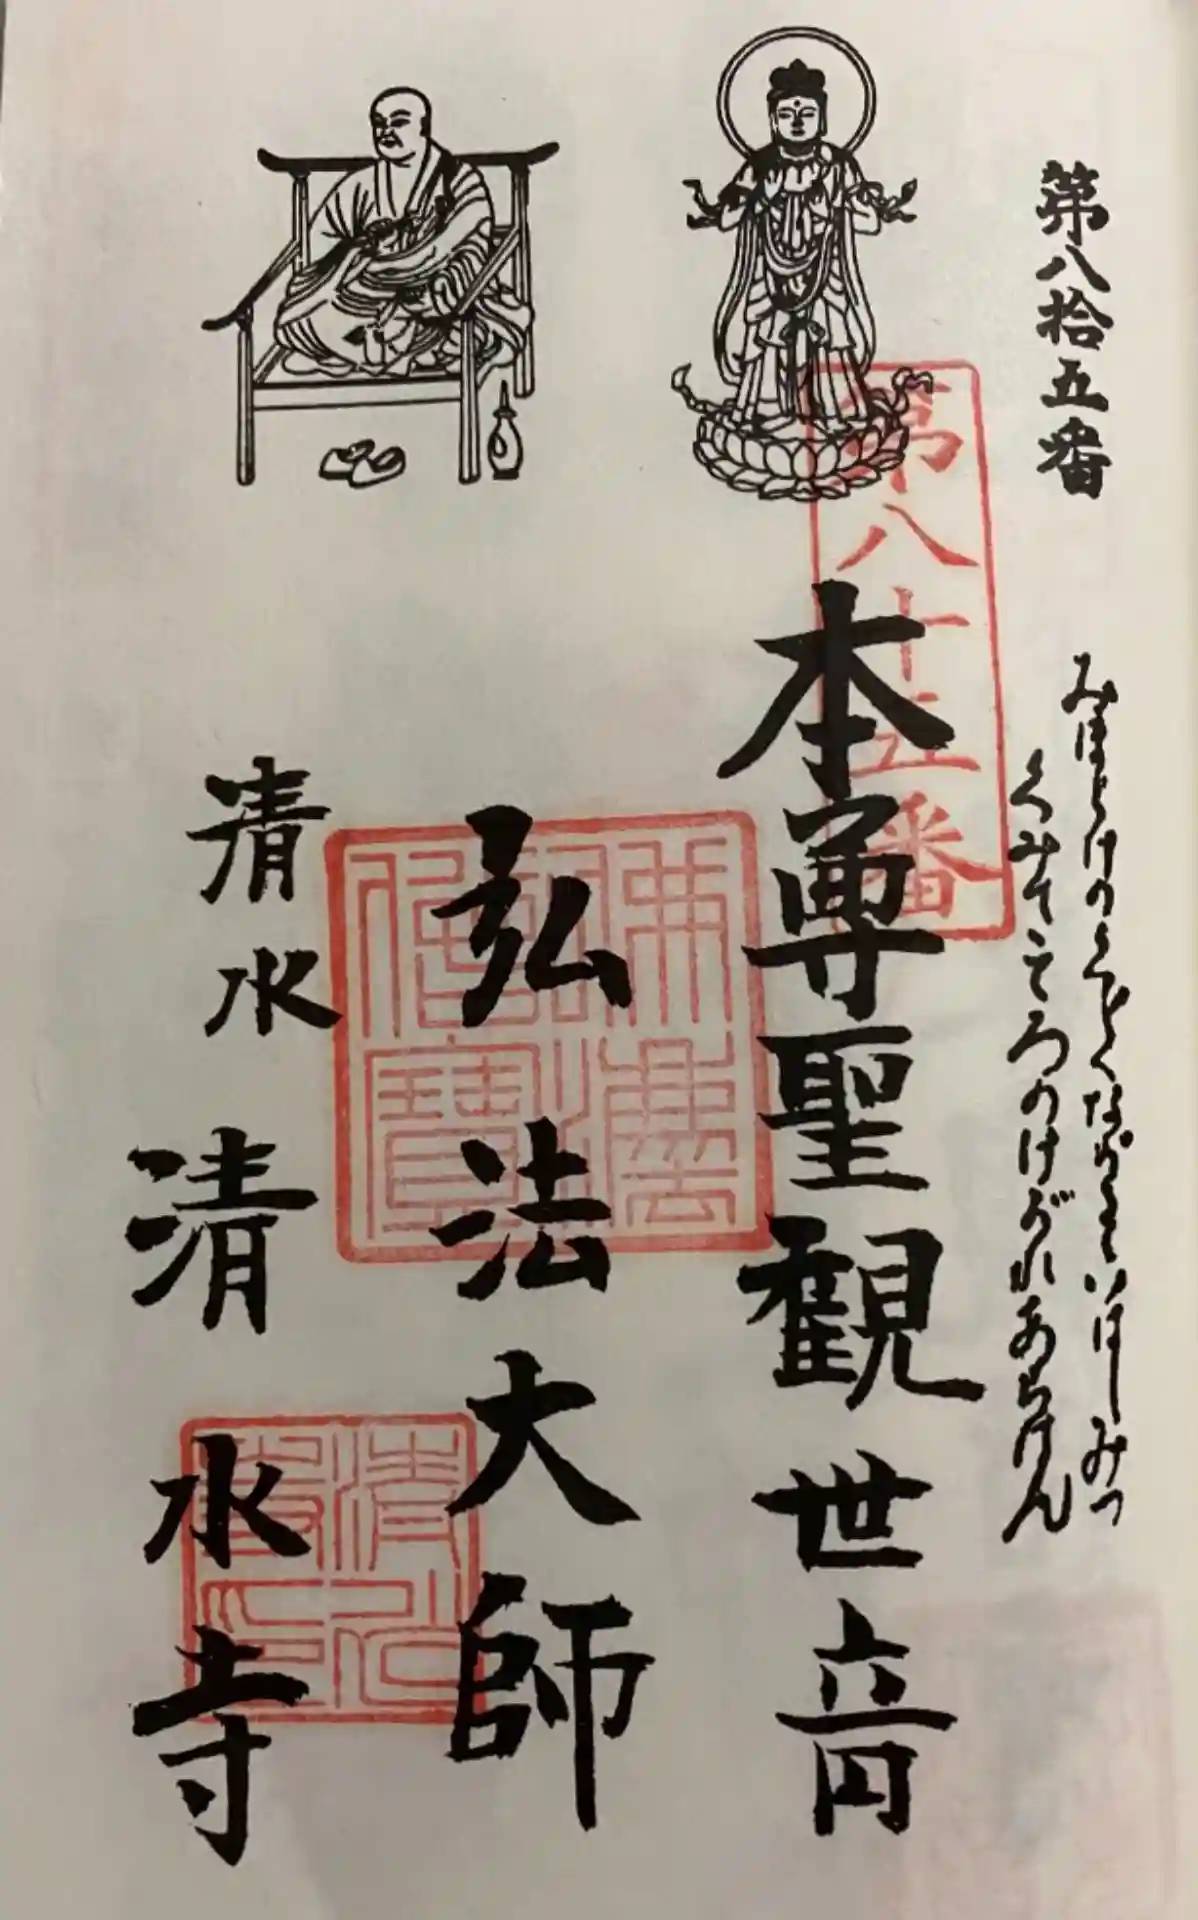 第八拾五番
みほとけのくどくながるゝいはしみづ
くみてこころのけがれあらはん
第八十五番
本尊聖観世音
弘法大師
佛法僧寶
清水
清水寺